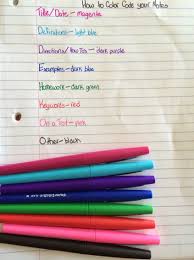 How to Color Code your Notes
Title/Date - magenta
Definitions - light blue
Directions/How Tos - dark purple
Examples - dark blue
Homework - dark green
Keywords - red
On a Test - pink
Other - black